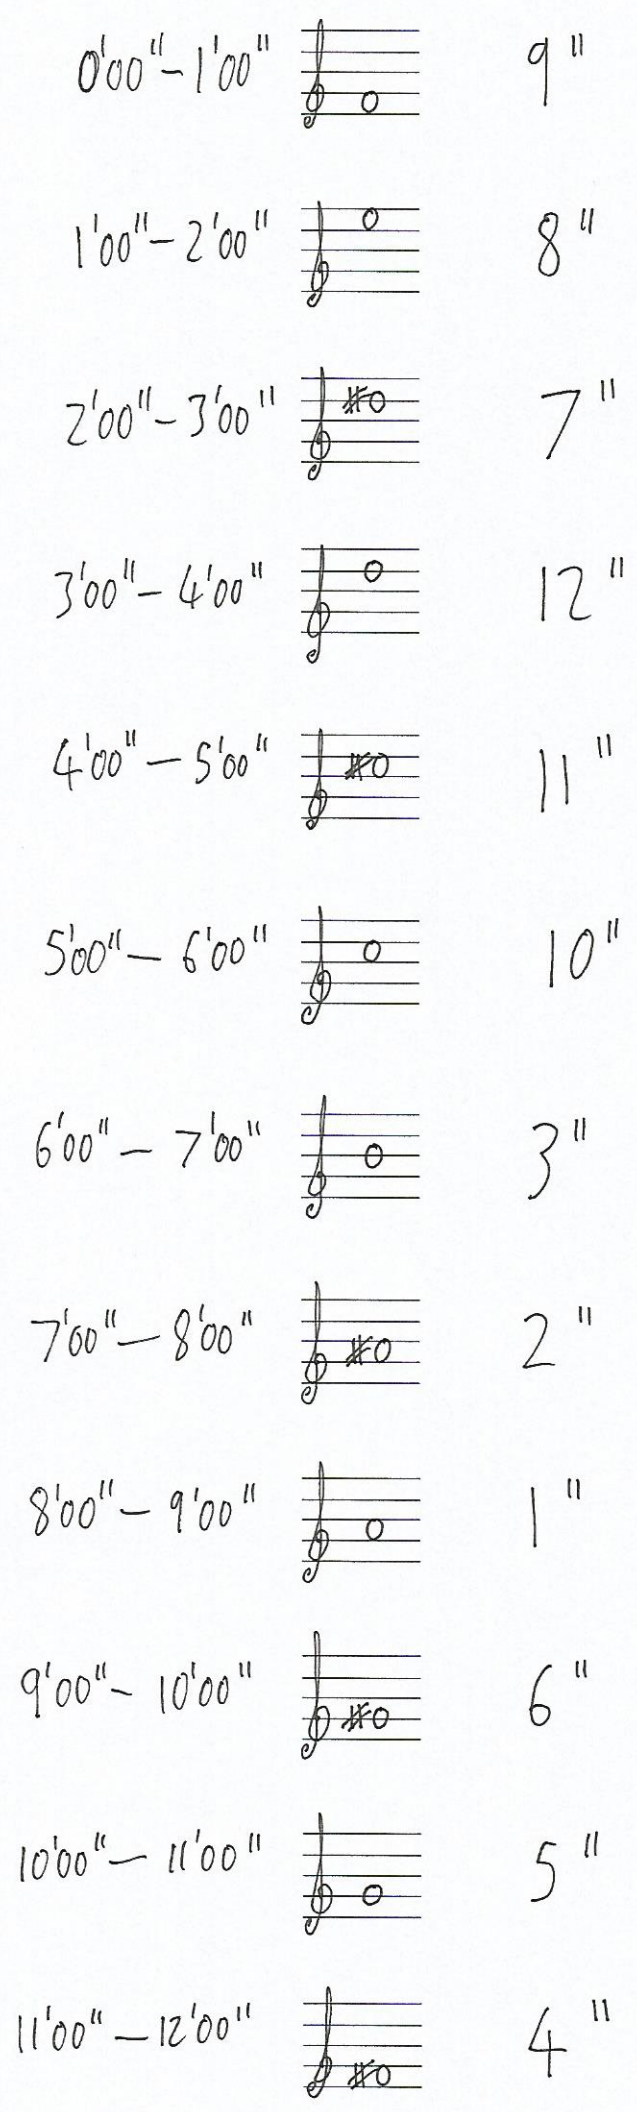 0'00"–1'00" 9"
1'00"–2'00" 8"
2'00"–3'00" 7"
3'00"–4'00" 12"
4'00"–5'00" 11"
5'00"–6'00" 10"
6'00"–7'00" 3"
7'00"–8'00" 2"
8'00"–9'00" 1"
9'00"–10'00" 6"
10'00"–11'00" 5"
11'00"–12'00" 4"